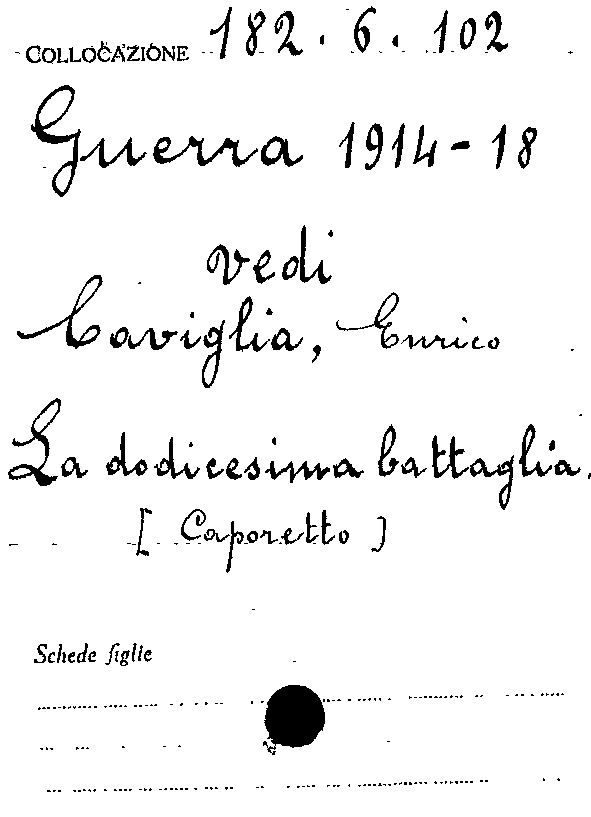 COLLOCAZIONE 182.6.102
Guerra 1914-18
vedi
Caviglia, Enrico
La dodicesima battaglia.
[Caporetto]
Schede figlie